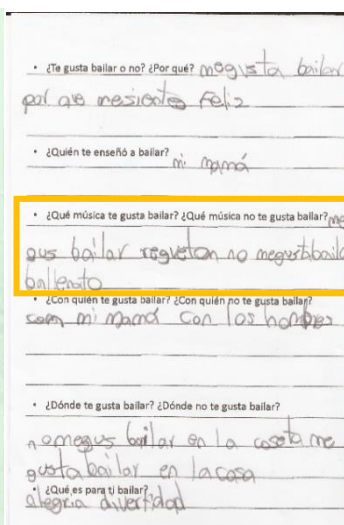 • ¿Te gusta bailar o no? ¿Por qué? megusta bailar
por que mesientes Feliz
• ¿Quién te enseñó a bailar?
mi mamá
• ¿Qué música te gusta bailar? ¿Qué música no te gusta bailar? me
gus bailar regueton no megusta baila
ballenato
• ¿Con quién te gusta bailar? ¿Con quién no te gusta bailar?
con mi mamá con los hombres
• ¿Dónde te gusta bailar? ¿Dónde no te gusta bailar?
nomegus bailar en la caseta me
gusta bailar en lacasa
• ¿Qué es para ti bailar?
alegria divertidad